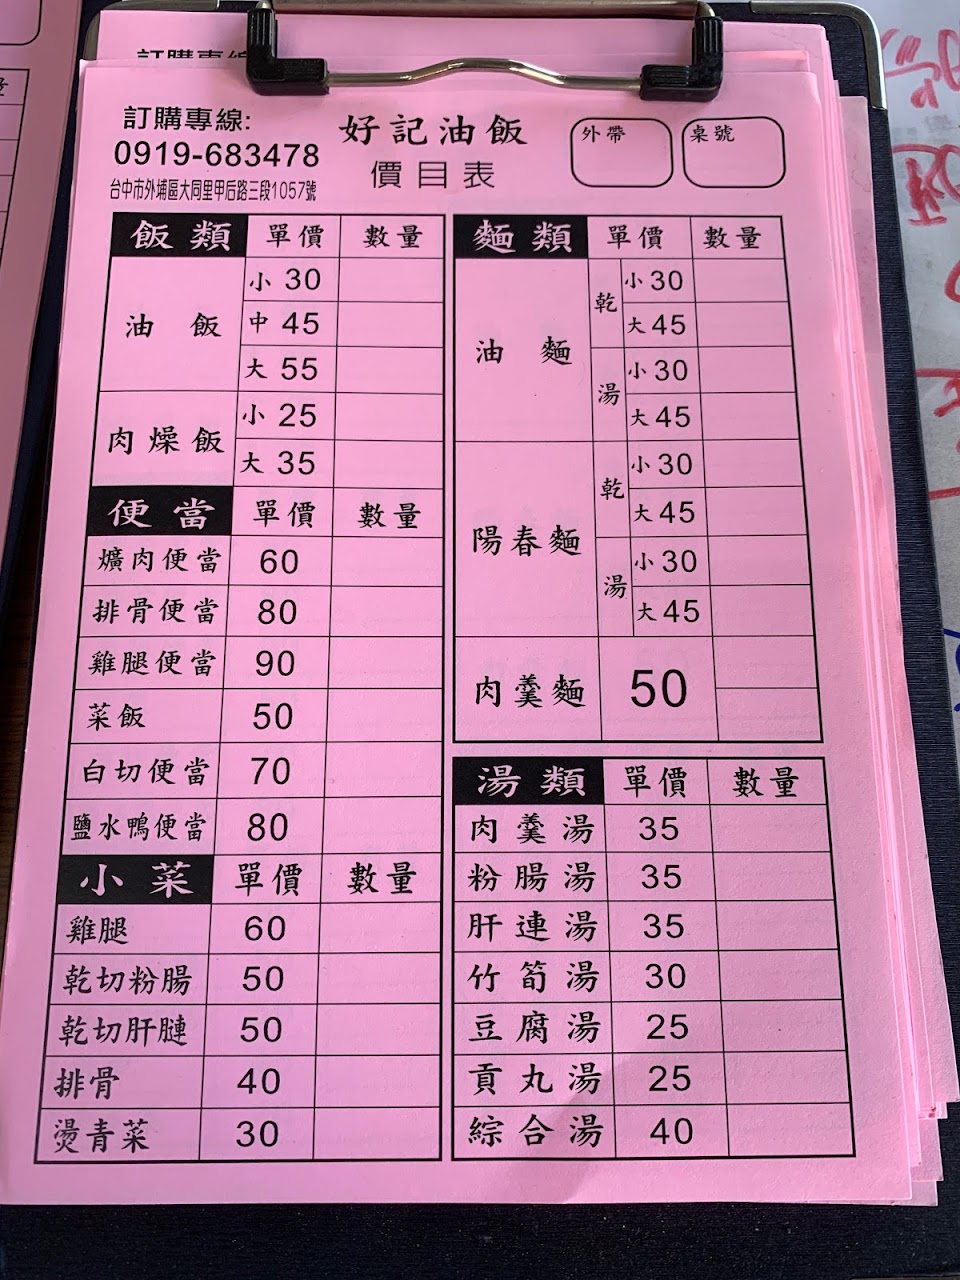 訂購專線
訂購專線:
0919-683478
台中市外埔區大同里甲后路三段1057號
好記油飯
價目表
外帶
桌號
飯類 單價 數量
油飯 小 30
中 45
大 55
肉燥飯 小 25
大 35
便當 單價 數量
爌肉便當 60
排骨便當 80
雞腿便當 90
菜飯 50
白切便當 70
鹽水鴨便當 80
小菜 單價 數量
雞腿 60
乾切粉腸 50
乾切肝腱 50
排骨 40
燙青菜 30
麵類 單價 數量
油麵 乾 小 30
大 45
湯 小 30
大 45
陽春麵 乾 小 30
大 45
湯 小 30
大 45
肉羹麵 50
湯類 單價 數量
肉羹湯 35
粉腸湯 35
肝連湯 35
竹筍湯 30
豆腐湯 25
貢丸湯 25
綜合湯 40